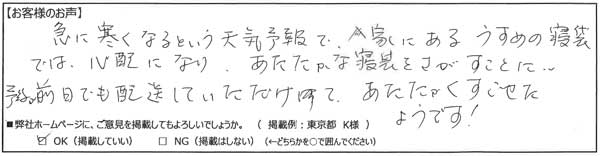 【お客様のお声】
急に寒くなるという天気予報で、家にあるうすめの寝袋
では、心配になり、あたたかな寝袋をさがすことに…
予約前日でも配送していただけて、あたたかくすごせた
ようです！
■弊社ホームページに、ご意見を掲載してもよろしいでしょうか。（掲載例：東京都 K様）
☑ OK（掲載していい） □ NG（掲載はしない）（←どちらかを○で囲んでください）